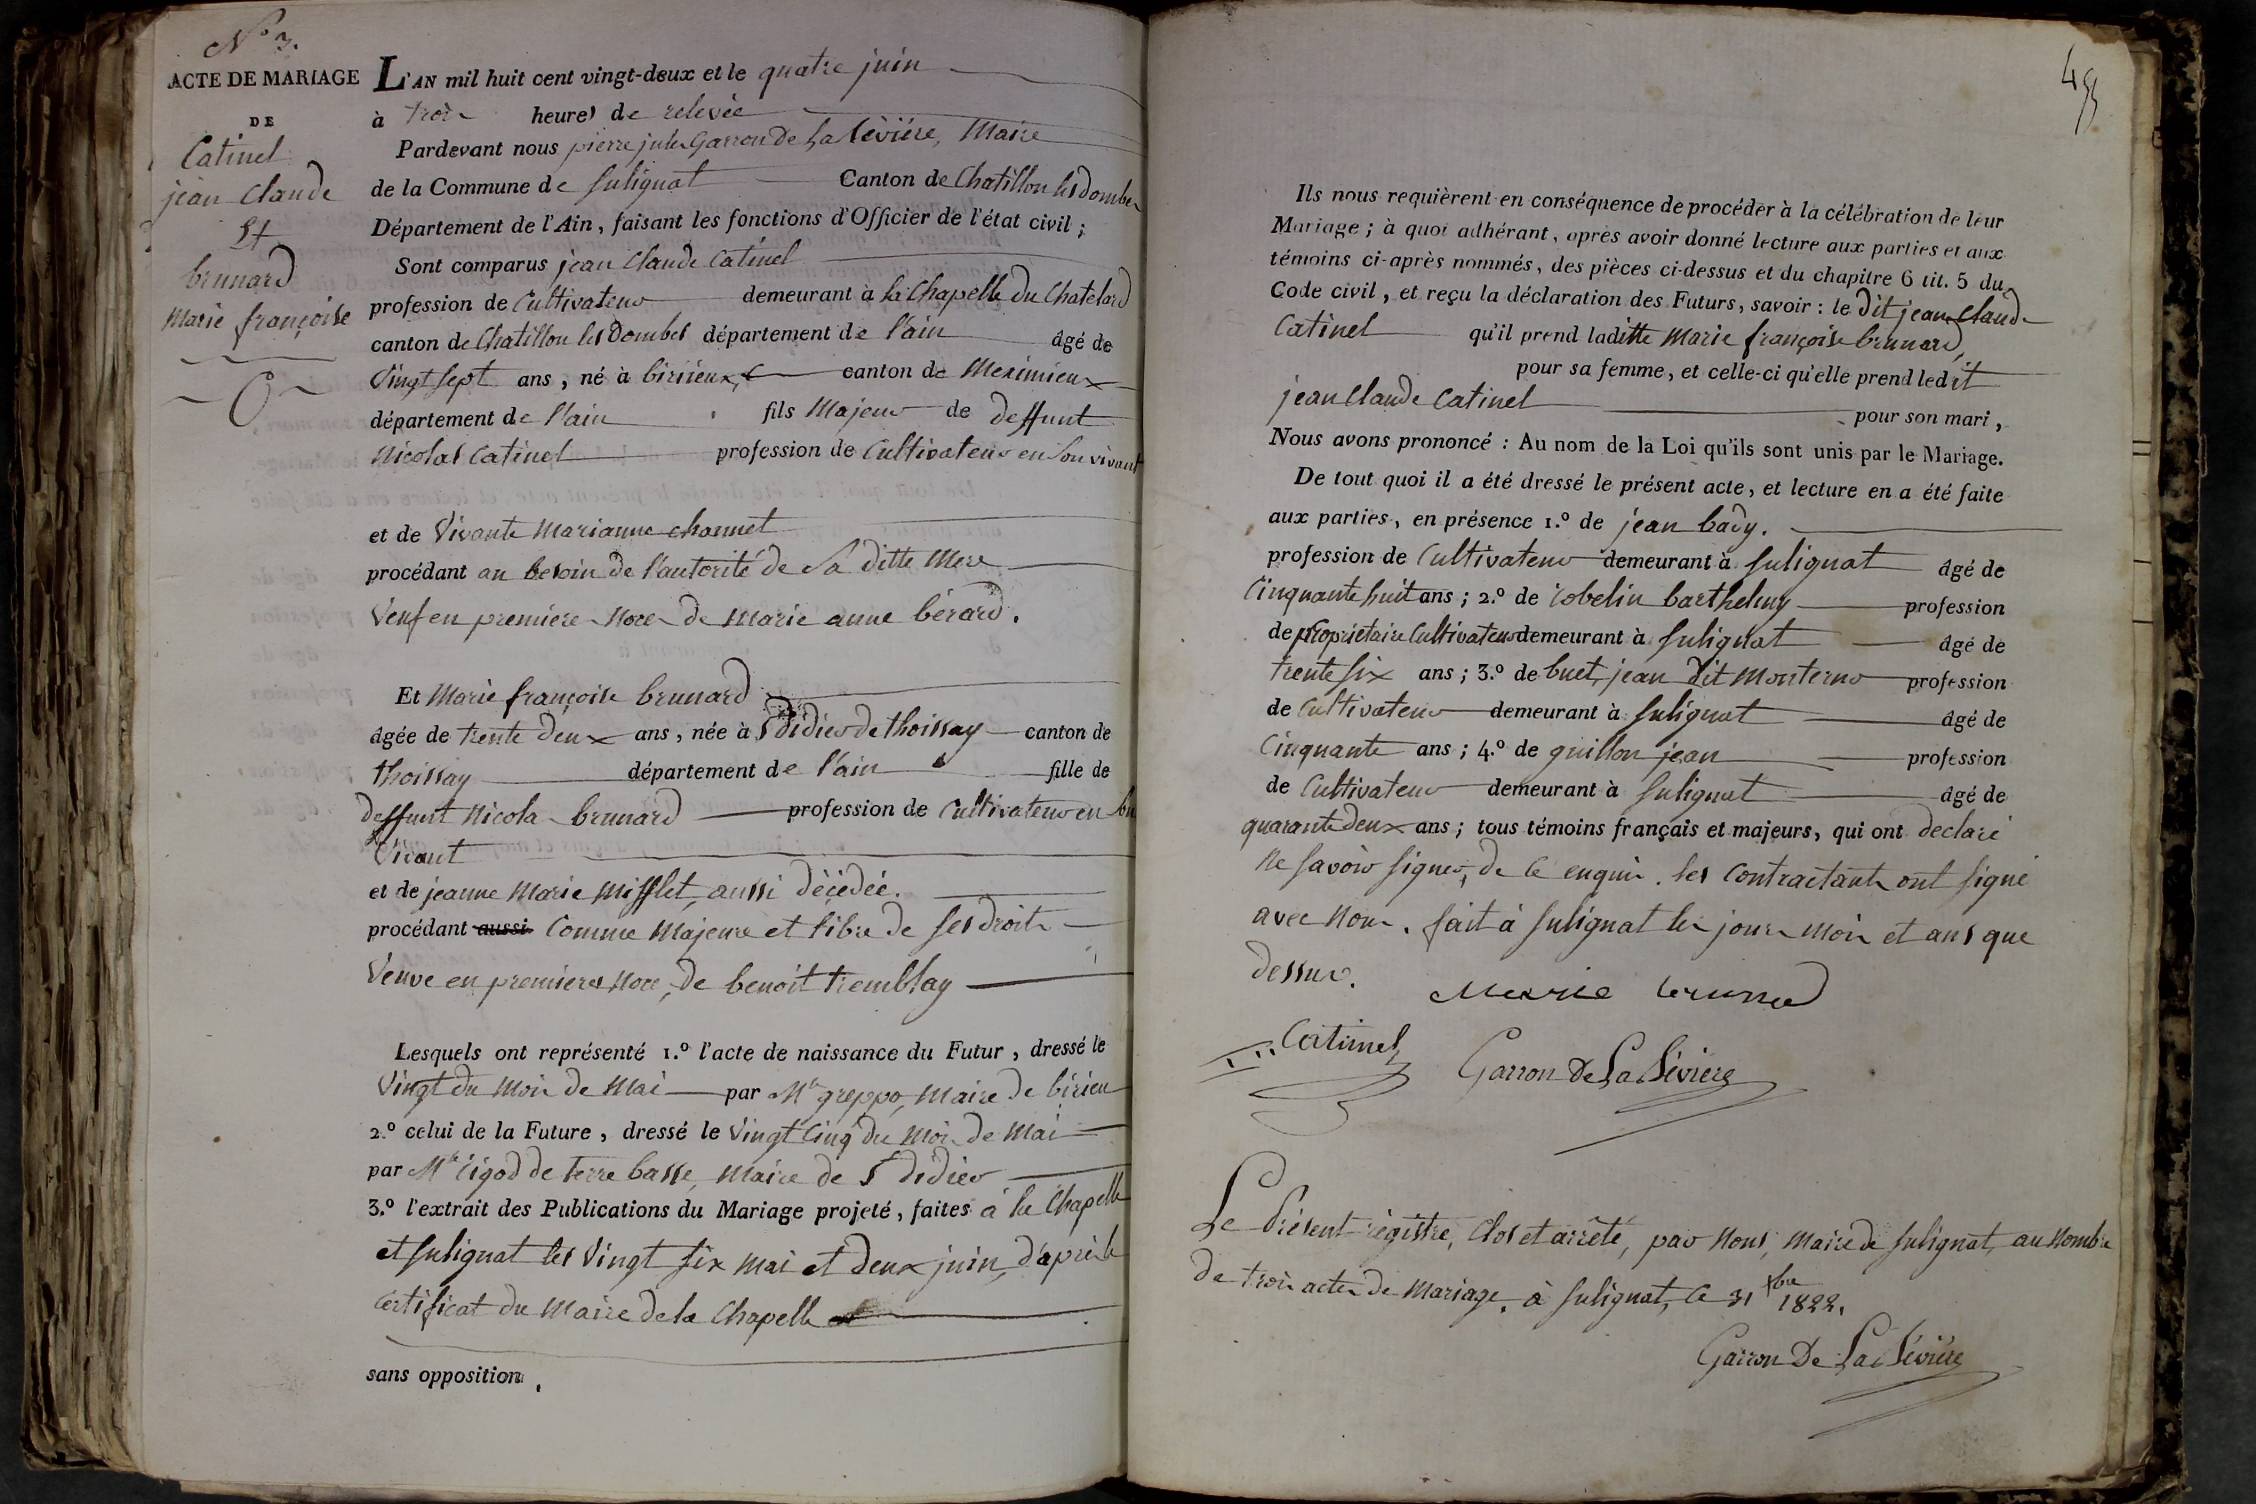 N° 3.
ACTE DE MARIAGE
DE
Catinel
jean Claude
Et
brunard
Marie françoise
L'AN mil huit cent vingt-deux et le quatre juin
à trois heures de relevée
Pardevant nous pierre jules Garron De La Sévière, Maire
de la Commune de Sulignat Canton de Chatillon les dombes
Département de l'Ain, faisant les fonctions d'Officier de l'état civil ;
Sont comparus jean Claude Catinel
profession de Cultivateur demeurant à la Chapelle du Chatelard
canton de Chatillon les Dombes département de l'ain âgé de
Vingt sept ans, né à birieux, canton de Meximieux
département de l'ain fils Majeur de deffunt
Nicolas Catinel profession de Cultivateur en Son vivant
et de Vivante Marianne channel
procédant au besoin de l'autorité de Sa ditte Mere
Veuf en premiere Noces de Marie anne bérard.
Et Marie françoise brunard
âgée de trente deux ans, née à St didier de thoissay canton de
thoissay département de l'ain fille de
deffunt Nicolas brunard profession de Cultivateur en Son
Vivant
et de jeanne Marie Mifflet, aussi décédée.
procédant aussi Comme Majeure et libre de Ses droits
Veuve en premieres Noce, de benoit tremblay
Lesquels ont représenté 1.° l'acte de naissance du Futur, dressé le
Vingt du Mois de Mai par Mr greppo, Maire de birieu
2.° celui de la Future, dressé le Vingt Cinq du Mois de Mai
par Mr Cigod de terre basse, Maire de St didier
3.° l'extrait des Publications du Mariage projeté, faites à la Chapelle
et Sulignat les Vingt Six Mai et deux juin, d'après le
Certificat du Maire de la Chapelle
sans opposition.
Ils nous requièrent en conséquence de procéder à la célébration de leur
Mariage ; à quoi adhérant, après avoir donné lecture aux parties et aux
témoins ci-après nommés, des pièces ci-dessus et du chapitre 6 tit. 5 du
Code civil, et reçu la déclaration des Futurs, savoir : le dit jean Claude
Catinel qu'il prend laditte Marie françoise brunard,
pour sa femme, et celle-ci qu'elle prend ledit
jean Claude Catinel pour son mari,
Nous avons prononcé : Au nom de la Loi qu'ils sont unis par le Mariage.
De tout quoi il a été dressé le présent acte, et lecture en a été faite
aux parties, en présence 1.° de jean bady.
profession de Cultivateur demeurant à Sulignat âgé de
Cinquante huit ans ; 2.° de Cobelin barthelmy profession
de propriétaire Cultivateur demeurant à Sulignat âgé de
trente Six ans ; 3.° de buet, jean dit Monterno profession
de Cultivateur demeurant à Sulignat âgé de
Cinquante ans ; 4.° de guillon jean profession
de Cultivateur demeurant à Sulignat âgé de
quarante deux ans ; tous témoins français et majeurs, qui ont declaré
Ne Savoir Signer, de Ce enquis. les Contractants ont Signé
avec Nous. fait à Sulignat les jours Mois et ans que
dessus.
Marie brunard
Catinel
Garron De La Sévière
Le Présent régistre, Clos et arrêté, par Nous, Maire de Sulignat, au Nombre
de trois actes de Mariage. à Sulignat, Ce 31 Xbre 1822.
Garron De La Sévière